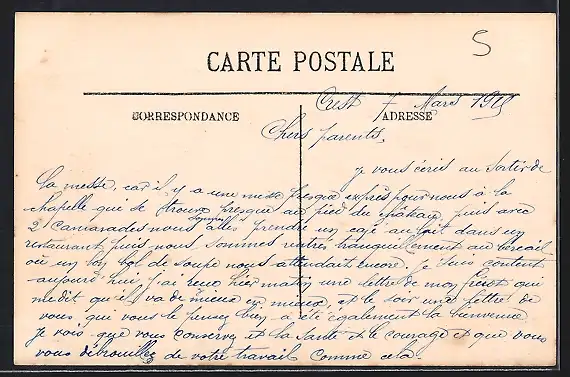 5
CARTE POSTALE
Crest 7 Mars 1915
CORRESPONDANCE
ADRESSE
Chers parents,
je vous écris au sortir de
la messe, car il y a une messe presque exprès pour nous à la
chapelle qui se trouve presque au pied du chateau, puis avec
2 camarades nous sommes allés prendre un café au lait dans un
restaurant, puis nous sommes rentrés tranquillement au bercail
où un bon bol de soupe nous attendait encore, je suis content
aujourd'hui, j'ai reçu hier matin une lettre de mon frérot qui
me dit qu'il va de mieux en mieux, et le soir une lettre de
vous qui vous le pensez bien a été également la bienvenue
je vois que vous conservez et la santé et le courage et que vous
vous débrouillez de votre travail comme cela